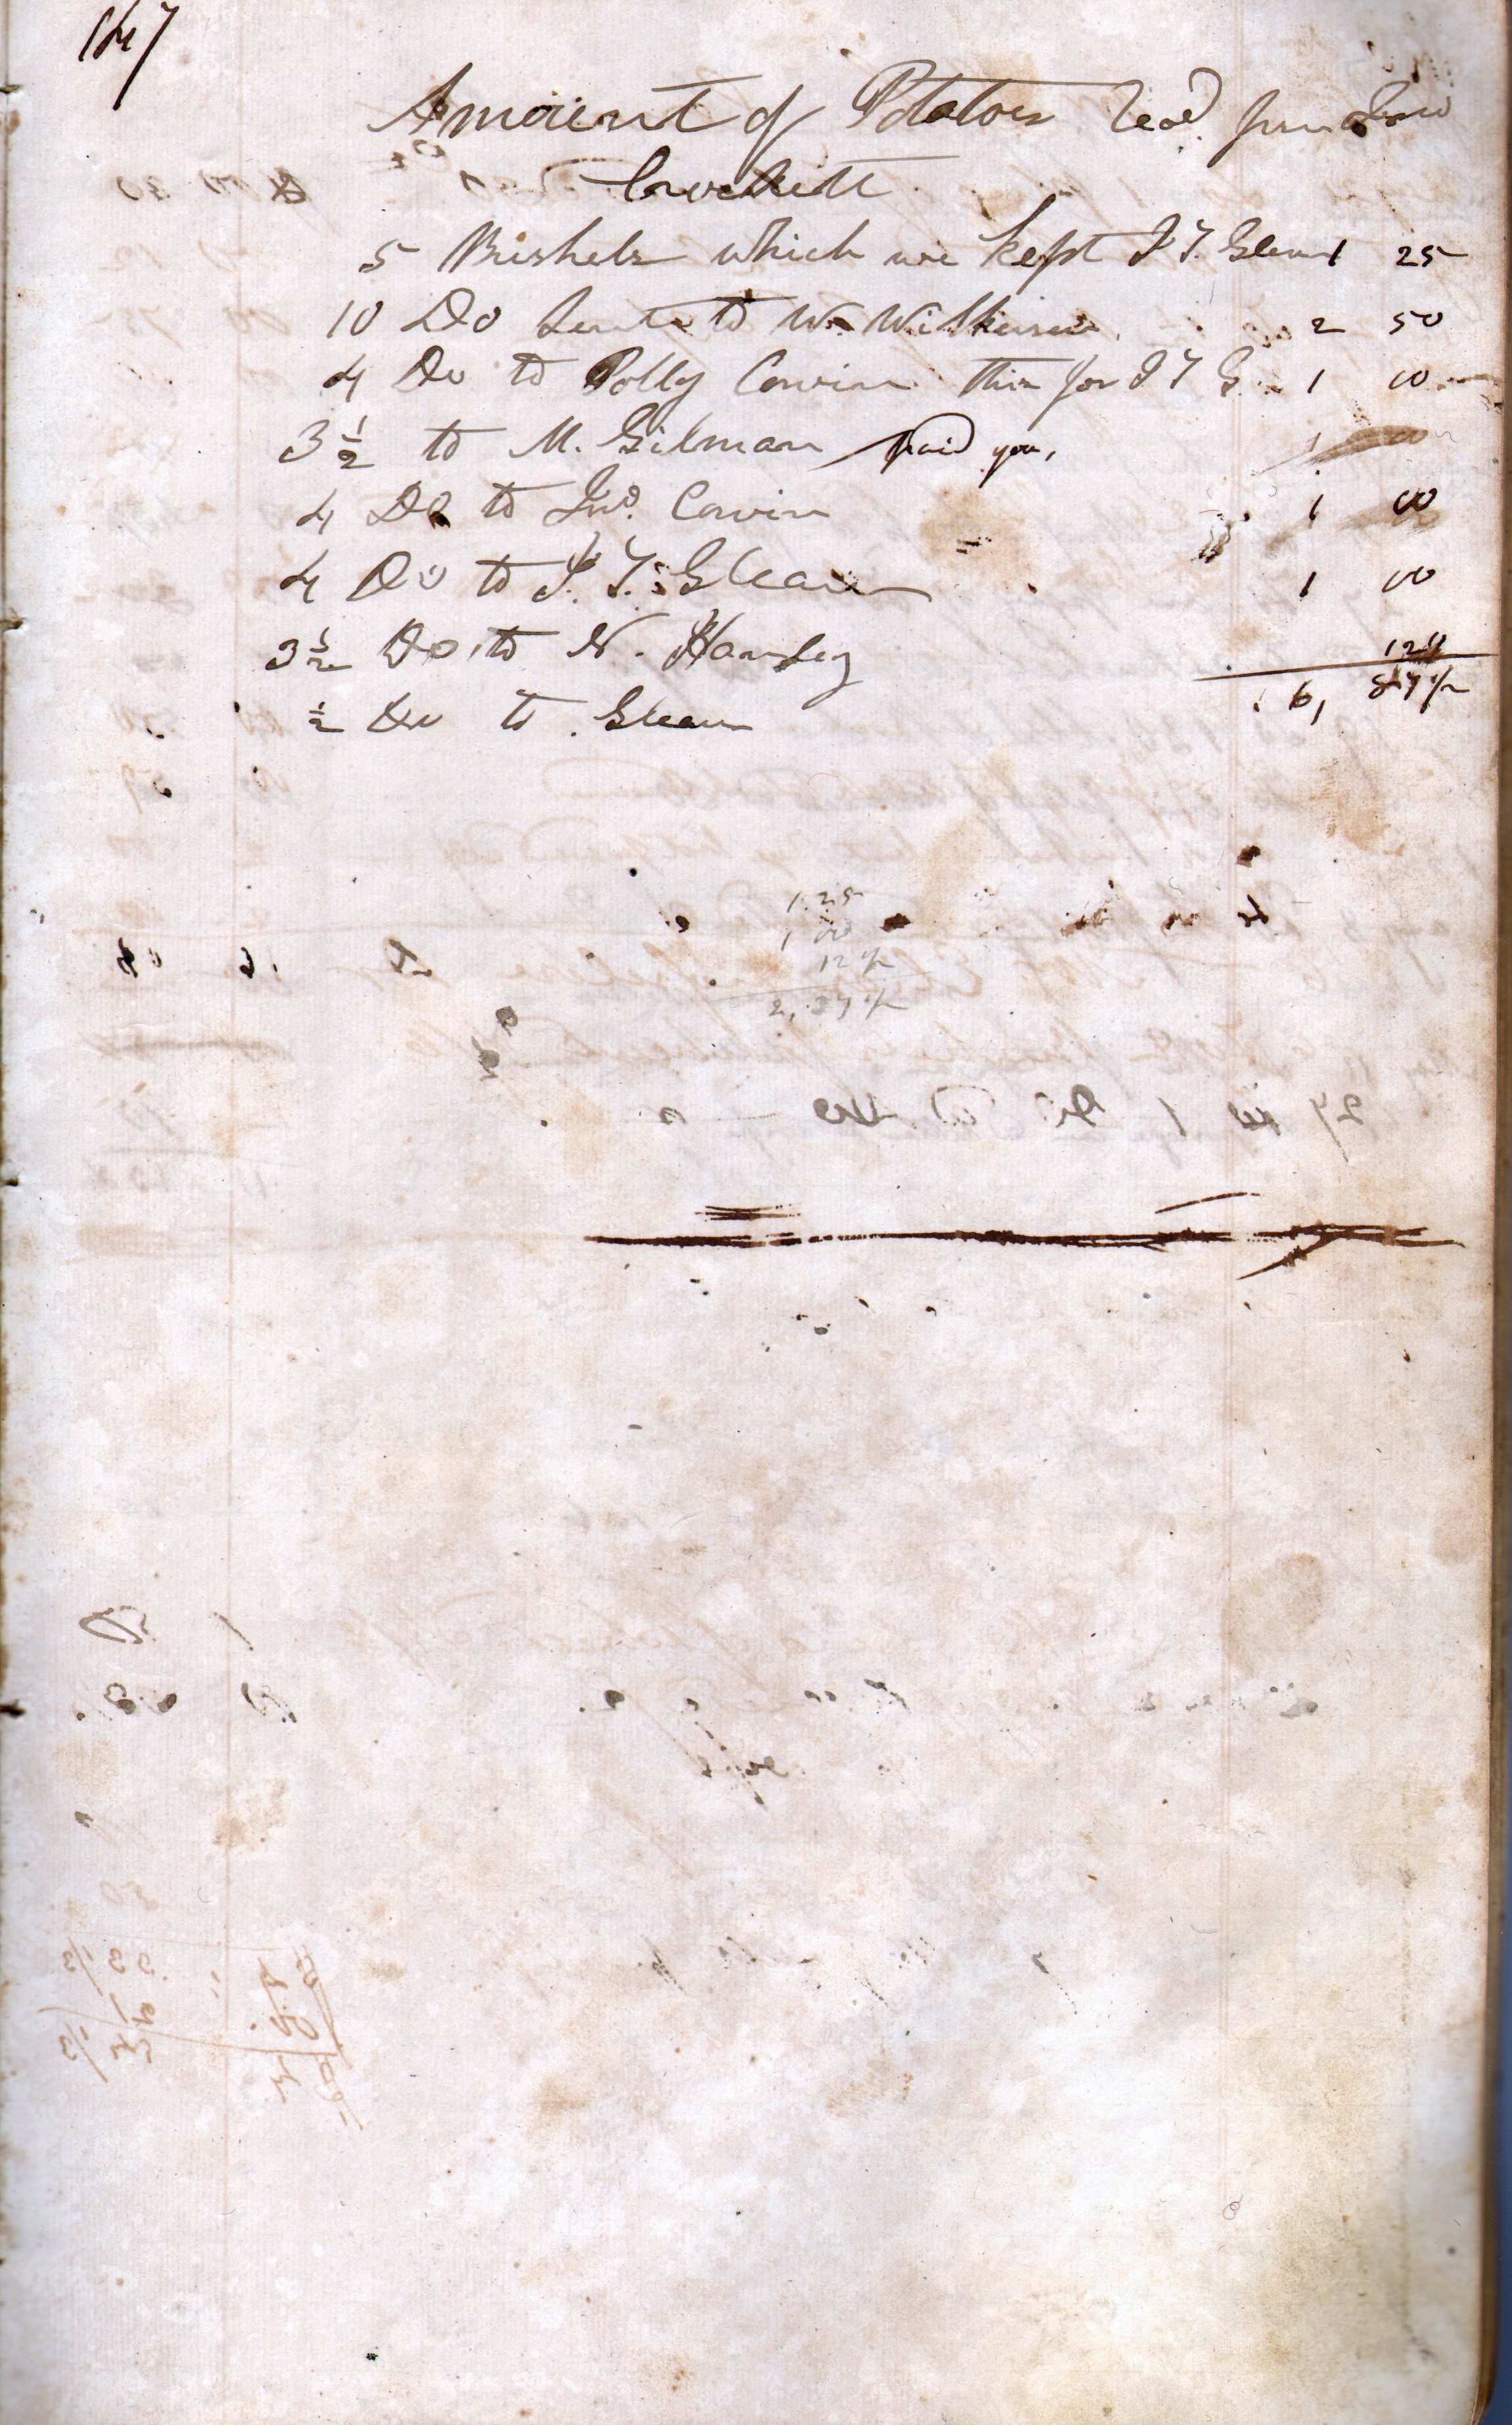 147
Amount of Potatoes Recd from
Crockett
5 Bushels which we kept I T. Glenn 1 25
10 Do Sent to Wm Wilkerson 2 50
4 Do to Polly Corwin this for I T G. 1 00
3 1/2 to M. Gilman paid you,
4 Do to Jno. Corwin 1 00
4 Do to I. T. Glean 1 00
3 1/2 Do to N. 12 1/2
6, 87 1/2
1/2 Do to Glean
1 25
1 00
12 1/2
2, 37 1/2